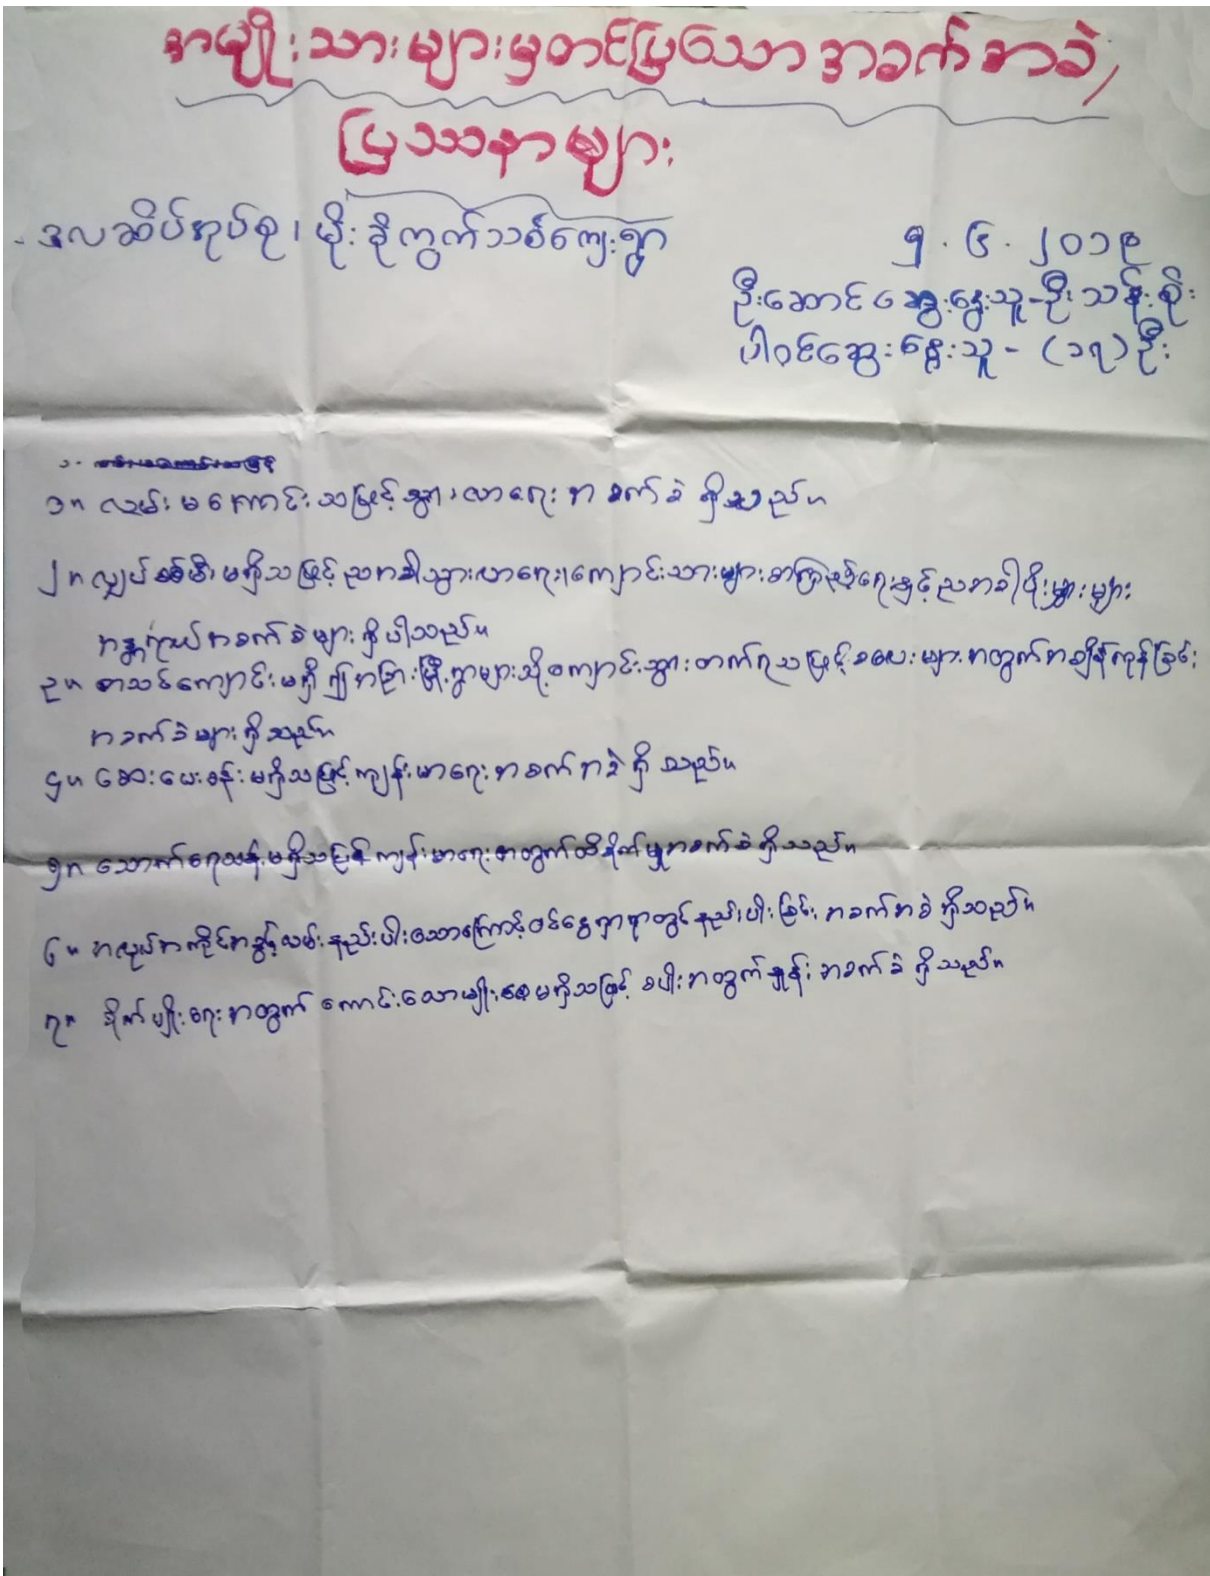 အမျိုးသားများမှတင်ပြသောအခက်အခဲ/
ပြဿနာများ
ဒလဆိပ်အုပ်စု၊ မိုးခိုကွက်သစ်ကျေးရွာ
၅.၆.၂၀၁၉
ဦးဆောင်ဆွေးနွေးသူ-ဦးသန်းစိုး
ပါဝင်ဆွေးနွေးသူ - (၁၇)ဦး
၁။ လမ်းမကောင်းသဖြင့်သွား၊လာရေး အခက်ခဲ ရှိသည်။
၂။ လျှပ်စစ်မီး မရှိသဖြင့်ညအခါသွားလာရေး၊ကျောင်းသားများစာကြည့်ရေးနှင့်ညအခါပိုးမွှားများ
အန္တရာယ်အခက်ခဲများ ရှိပါသည်။
၃။ စာသင်ကျောင်းမရှိ၍အခြားမြို့ရွာများသို့ကျောင်းသွားတက်ရသဖြင့်ခလေးများအတွက်အချိန်ကုန်ခြင်း
အခက်ခဲများရှိသည်။
၄။ ဆေးပေးခန်းမရှိသဖြင့်ကျန်းမာရေးအခက်အခဲရှိသည်။
၅။ သောက်ရေသန့်မရှိသဖြင့်ကျန်းမာရေးအတွက်ထိခိုက်မှုအခက်ခဲရှိသည်။
၆။ အလုပ်အကိုင်အခွင့်လမ်းနည်းပါးသောကြောင့်ဝင်ငွေရှာရာတွင်နည်းပါးခြင်းအခက်အခဲရှိသည်။
၇။ စိုက်ပျိုးရေးအတွက် ကောင်းသောမျိုးစေ့မရှိသဖြင့် စပါးအတွက်နှုန်းအခက်ခဲရှိသည်။